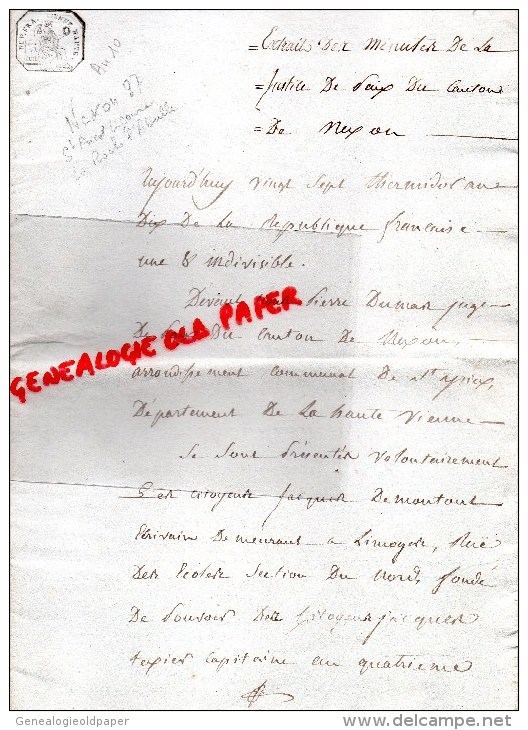 Extraits des minutes De La
Justice De paix Du Canton
De Nexon
An 10
Nexon 87
Aujourd'huy vingt sept thermidor an
Dix De La Republique francaise
une & indivisible.
Devant nous Pierre Dumas juge
De paix Du Canton De Nexon,
arrondissement communal De St yrieix,
Département De La haute vienne
Se sont présentés volontairement
Les citoyens jacques Demontout
Ecrivain Demeurant a Limoges, Rue
Des Ecoles section Du Nord, fondé
De pouvoir Des Citoyens jacques
texier capitaine au quatrieme
GENEALOGIE OLD PAPER
Genealogieoldpaper
delcampe.net